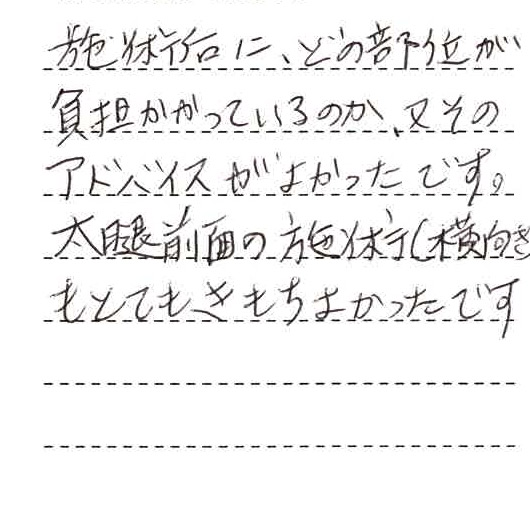 施術后に、どの部位が
負担かかっているのか、又その
アドバイスがよかったです。
太腿前面の施術(横向き
もとてもきもちよかったです